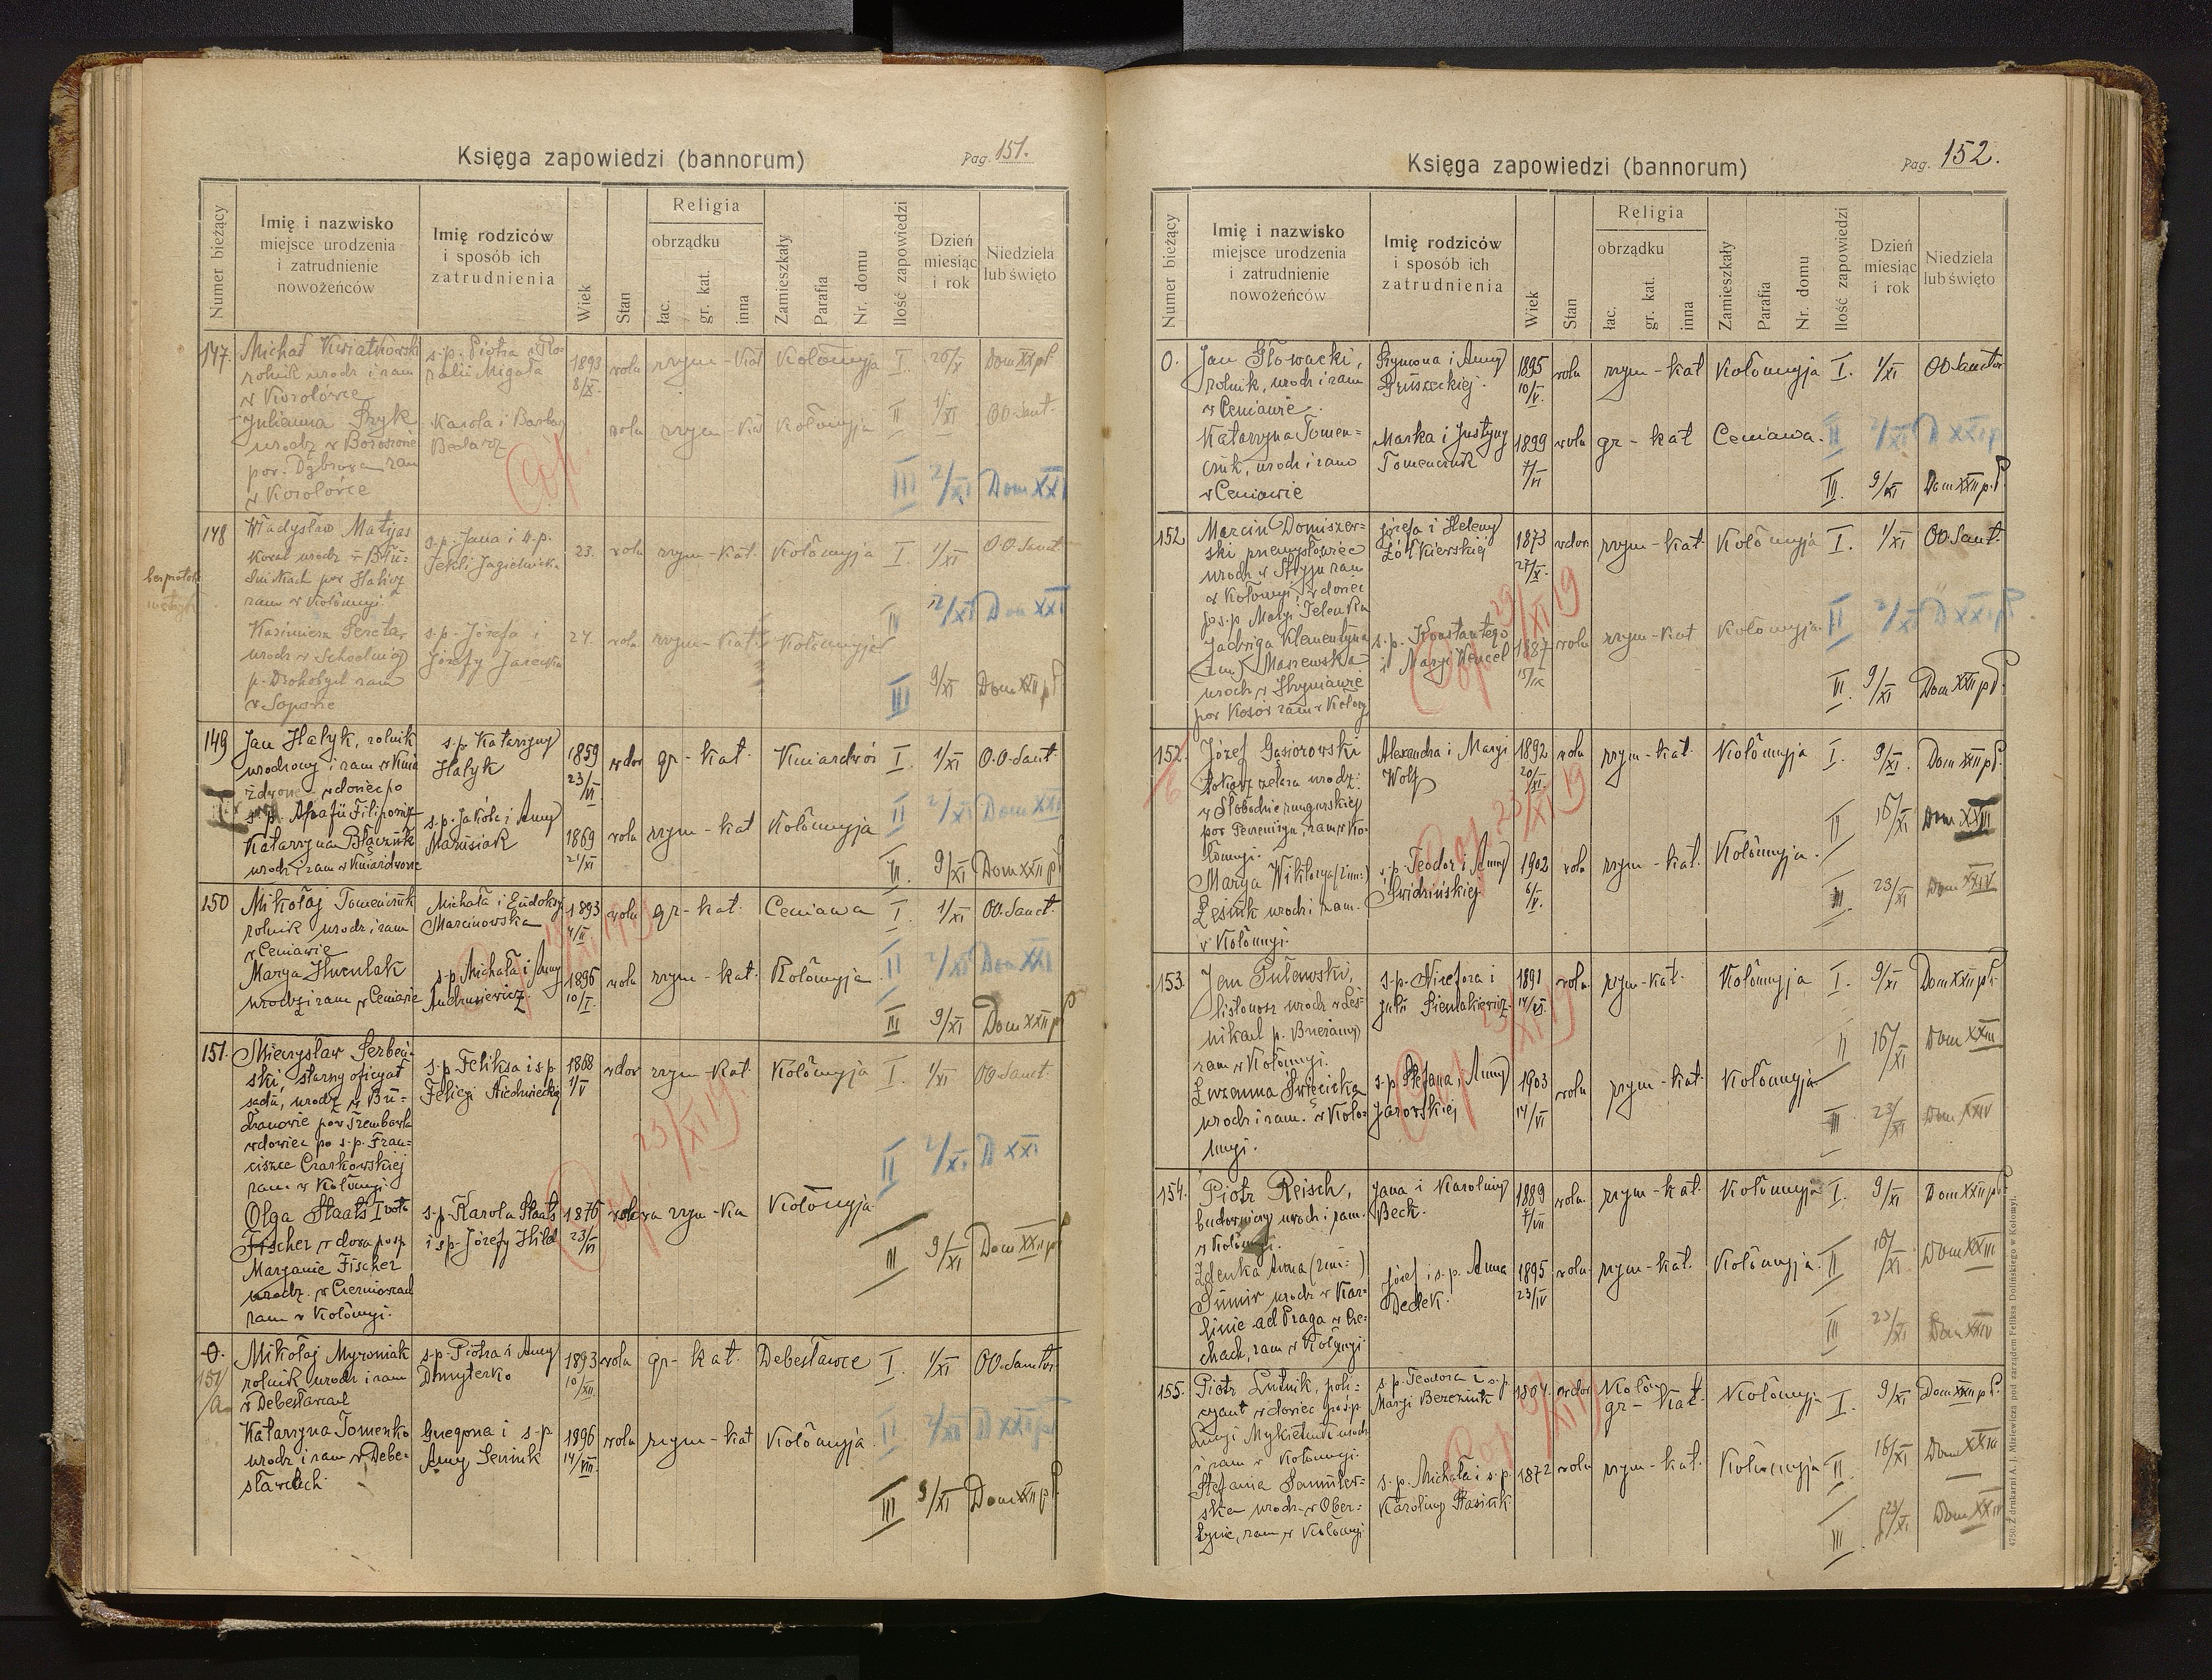 Księga zapowiedzi (bannorum)
Pag. 151.
Numer bieżący
Imię i nazwisko
miejsce urodzenia
i zatrudnienie
nowożeńców
Imię rodziców
i sposób ich
zatrudnienia
Wiek
Stan
Religia
obrządku
łac.
gr. kat.
inna
Zamieszkały
Parafia
Nr. domu
Ilość zapowiedzi
Dzień
miesiąc
i rok
Niedziela
lub święto
147. Michał Kwiatkowski
rolnik urodz i zam
w Korolówce
s.p. Piotra i Ro-
zalii Migała
1893
8/XI.
wolu rzym-Kat Kołomyja I. 26/X Dom XX p P.
Julianna Szyk
urodz w Boroszowie
pow. Dąbrowa zam
w Korolówce
Karola i Barbary
Bednarz
wolu rzym-Kat Kołomyja II 1/XI OO. Sanct.
III 2/XI Dom XXI
148 Władysław Matyas
ram w Kołomyji
s.p. Jana i s.p.
Tekli Jagielnicka
23. wolu rzym-Kat. Kołomyja I. 1/XI OO Sanct
2/XI Dom XXI
Kazimiera Sereta
p. Drohobycz zam
w Sopowie
s.p. Józefa i
Józefy Jarecka
24. wolu rzym-Kat Kołomyja
III 9/XI Dom XXII p P
149 Jan Hałyk, rolnik
urodzony i zam w Knia
żdwone wdowiec po
s.p. Filipowicz
s.p. Katarzyny
Hałyk
1859
23/VI
wdow gr-kat. Kniażdwór I. 1/XI O.O. Sanct.
II 2/XI Dom XXI
Katarzyna Błaszczuk
urodz i zam w Kniażdwone
s.p. Jakóba i Anny
Marusiak
1869
21/XI
wolu rzym-kat Kołomyja
III. 9/XI Dom XXII p P
150 Mikołaj Tomenczuk
rolnik urodz i zam
w Ceniawie
Michała i Eudoksy
Marcinowska
1893
4/II
wolu gr-kat. Ceniawa I. 1/XI OO. Sanct.
II 2/XI Dom XXI
Marya Humlak
urodz i zam w Ceniawie
s.p. Michała i Anny
Andrusiewicz
1896
10/I.
wolu rzym-kat. Kołomyja
III 9/XI Dom XXII p P
151. Mieczysław Serbeń-
ski, starszy oficyał
sądu, urodz w Bu-
dzanowie pow Trembowla
wdowiec po s.p. Fran-
ciszce Czarkowskiej
zam w Kołomyji
s.p. Feliksa i s.p.
Felicji Niedzwiecki
1868
1/V
wdow rzym-kat. Kołomyja I. 1/XI OO Sanct.
23/XI 19
II 2/XI D XXI
Olga Staats I voto
Fischer wdowa po s.p.
Maryanie Fischer
urodz. w Czerniowcach
zam w Kołomyji.
s.p. Karola Staats
i s.p. Józefy Hild
1876
23/VI
wdowa rzym-ka Kołomyja
III 9/XI Dom XXII p P
0.
151/a
Mikołaj Myroniak
rolnik urodz i zam
w Debesławcach
s.p. Piotra i Anny
Dmyterko
1893
10/XII
wolu gr-kat. Debesławce I. 1/XI OO. Sanctor
II 2/XI D XXI p P
Katarzyna Tomenko
urodz i zam w Debe-
sławcach
Grzegorza i s.p.
Anny Seniuk
1896
14/VIII.
wolu rzym-kat Kołomyja
III 9/XI Dom XXII p P.
Księga zapowiedzi (bannorum)
Pag. 152.
Numer bieżący
Imię i nazwisko
miejsce urodzenia
i zatrudnienie
nowożeńców
Imię rodziców
i sposób ich
zatrudnienia
Wiek
Stan
Religia
obrządku
łac.
gr. kat.
inna
Zamieszkały
Parafia
Nr. domu
Ilość zapowiedzi
Dzień
miesiąc
i rok
Niedziela
lub święto
0. Jan Głowacki,
rolnik, urodz i zam
w Ceniawie.
Szymona i Anny
Gruszeckiej.
1895
10/V.
wolu rzym-kat Kołomyja I. 1/XI OO Sanctor
II 2/XI D XXI p
Katarzyna Tomen-
czuk, urodz i zam
w Ceniawie
Marka i Justyny
Tomenczuk
1899
7/VI
wolu gr-kat Ceniawa.
III. 9/XI Dom XXII p. P.
152 Marcin Domiszew-
ski przemysłowiec
urodz w Stryju zam
w Kołomyji, wdowiec
po s.p. Maryi
Józefa i Heleny
Żółkiewskiej
1873
27/X.
wdow. rzym-kat Kołomyja I. 1/XI OO. Sanct.
29/XI 19
II 2/XI D XXI p P.
Jadwiga Klementyna
(2im) Maszewska
pow Kosów zam w Kołomyji
s.p. Konstantego
i Maryi Wencel
1887
15/IX
wolu rzym-kat Kołomyja
III. 9/XI Dom XXII p P.
152/b Józef Gąsiorowski
tokarz żelaza urodz.
w Słobodzie rungurskiej
pow Peczeniżyn, zam w Ko-
łomyji.
Alexandra i Maryi
Wolf
1892
20/XI.
wolu rzym-kat. Kołomyja I. 9/XI. Dom XXII p P.
23/XI 19
II 16/XI Dom XXIII
Marya Wiktorya (2im:)
Łesiuk urodz i zam.
w Kołomyji.
s.p. Teodor i Anny
Swidzińskiej.
1902
6/V.
wolu rzym-kat. Kołomyja.
III 23/XI Dom XXIV
153. Jan Pułewski,
listonosz urodz w Leś-
nikach p. Brzeżany
zam w Kołomyji.
s.p. Nicefora i
Julii Sienlakiewicz
1891
wolu rzym-kat. Kołomyja I. 9/XI Dom XXII p P.
II 16/XI Dom XXIII
Zuzanna Swięcicka
urodz i zam. w Koło-
myji.
s.p. Stefana, Anny
Jarowskiej
1903
14/VI
wolu rzym-kat. Kołomyja
III 23/XI Dom XXIV
154. Piotr Reisch,
budowniczy urodz i zam.
w Kołomyji.
Jana i Karoliny
Beck.
1889
7/VII
wolu rzym-kat. Kołomyja I. 9/XI Dom XXII p P
Zdenka Anna (2im:)
Sumir urodz w Kar-
linie ad Praga w Cze-
chach, zam w Kołomyji
Józef i s.p. Anna
Dedek.
1895
23/IV
wolu rzym-kat. Kołomyja. II 16/XI Dom XXIII
III 23/XI Dom XXIV
155. Piotr Lutnik, poli-
cyant wdowiec po s.p.
i zam w Kołomyji.
s.p. Teodora i s.p.
Maryi Berezniuk
wdow gr-kat. Kołomyja I. 9/XI Dom XXII p P.
Stefania
urodz w Ober-
tynie, zam w Kołomyji
s.p. Michała i s.p.
Karoliny Stasiuk
1872 wolu rzym-kat. Kołomyja II 16/XI Dom XXIII
III 23/XI Dom XXIV
4750. Z drukarni A. J. Miziewicza pod zarządem Feliksa Dolińskiego w Kołomyi.